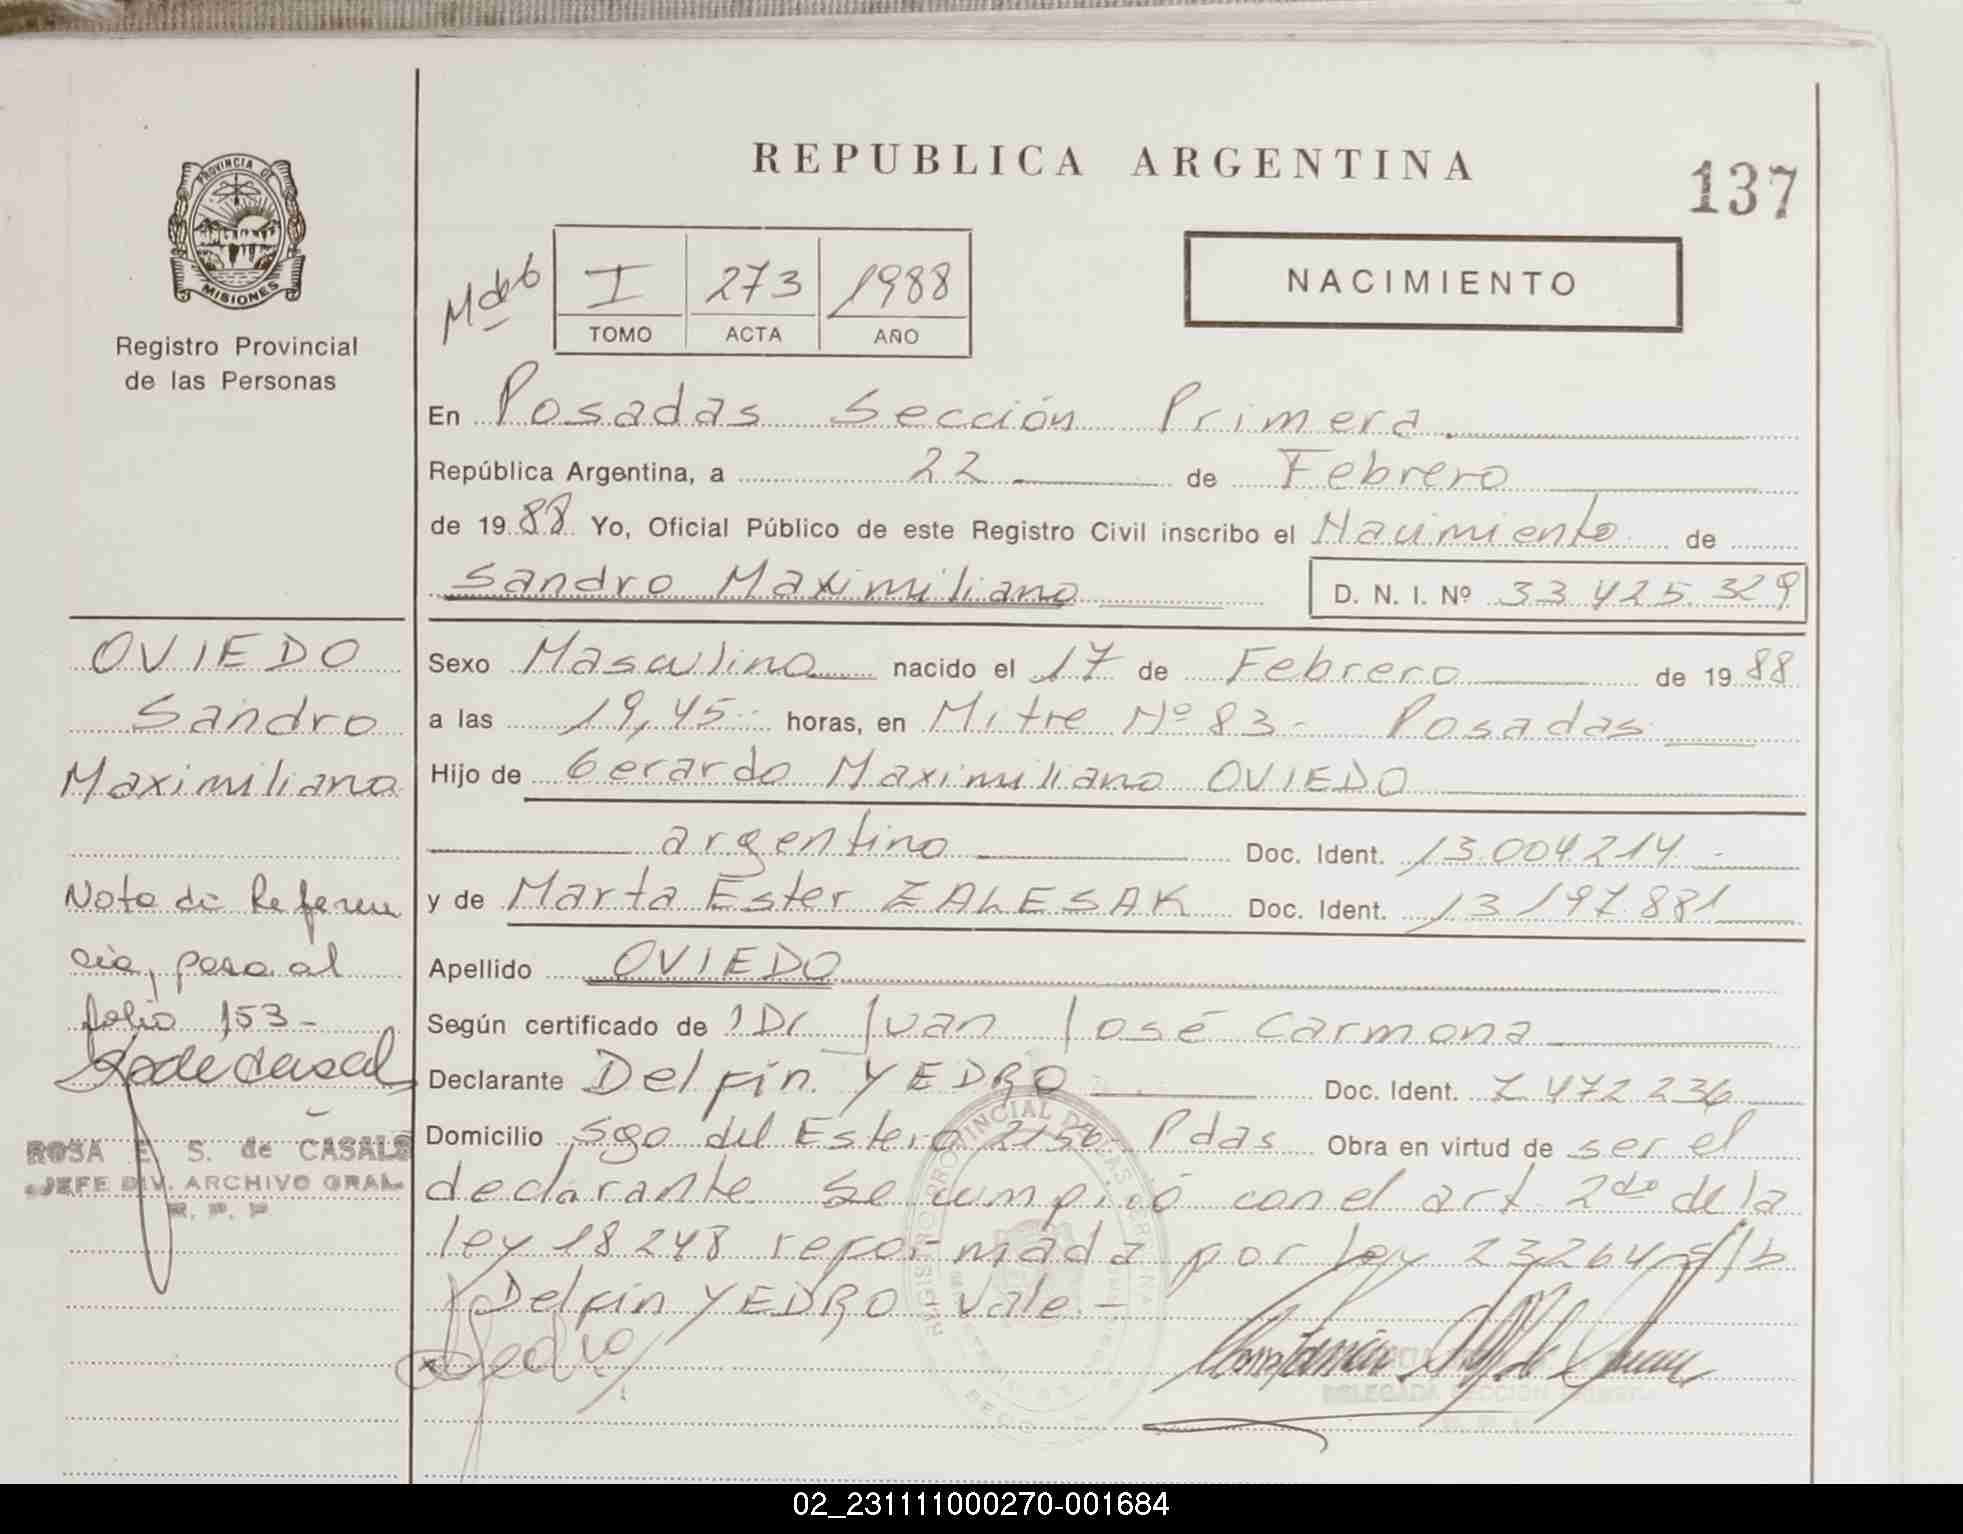 PROVINCIA DE
MISIONES
Registro Provincial
de las Personas
REPUBLICA ARGENTINA
137
I 273 1988
TOMO ACTA AÑO
NACIMIENTO
En Posadas Sección Primera.
República Argentina, a 22 de Febrero
de 1988 Yo, Oficial Público de este Registro Civil inscribo el Nacimiento de
Sandro Maximiliano D. N. I. Nº 33.425.329
OVIEDO
Sandro
Maximiliano
Nota de Referen
cia, pasa al
folio 153-
ROSA E. S. de CASALS
JEFE DIV. ARCHIVO GRAL.
R. P. P
Sexo Masculino nacido el 17 de Febrero de 1988
a las 19,45- horas, en Mitre Nº 83- Posadas
Hijo de Gerardo Maximiliano OVIEDO
argentino Doc. Ident. 13.004.214-
y de Marta Ester ZALESAK Doc. Ident. 13.197.881
Apellido OVIEDO
Según certificado de Dr Juan José Carmona
Declarante Delfin YEDRO Doc. Ident. 7.472.236
Domicilio Sgo del Estero 2156- Pdas Obra en virtud de ser el
declarante Se cumplió con el art 2do de la
ley 18248 reformada por ley 23264 s/b
Delfin YEDRO Vale.-
02_231111000270-001684